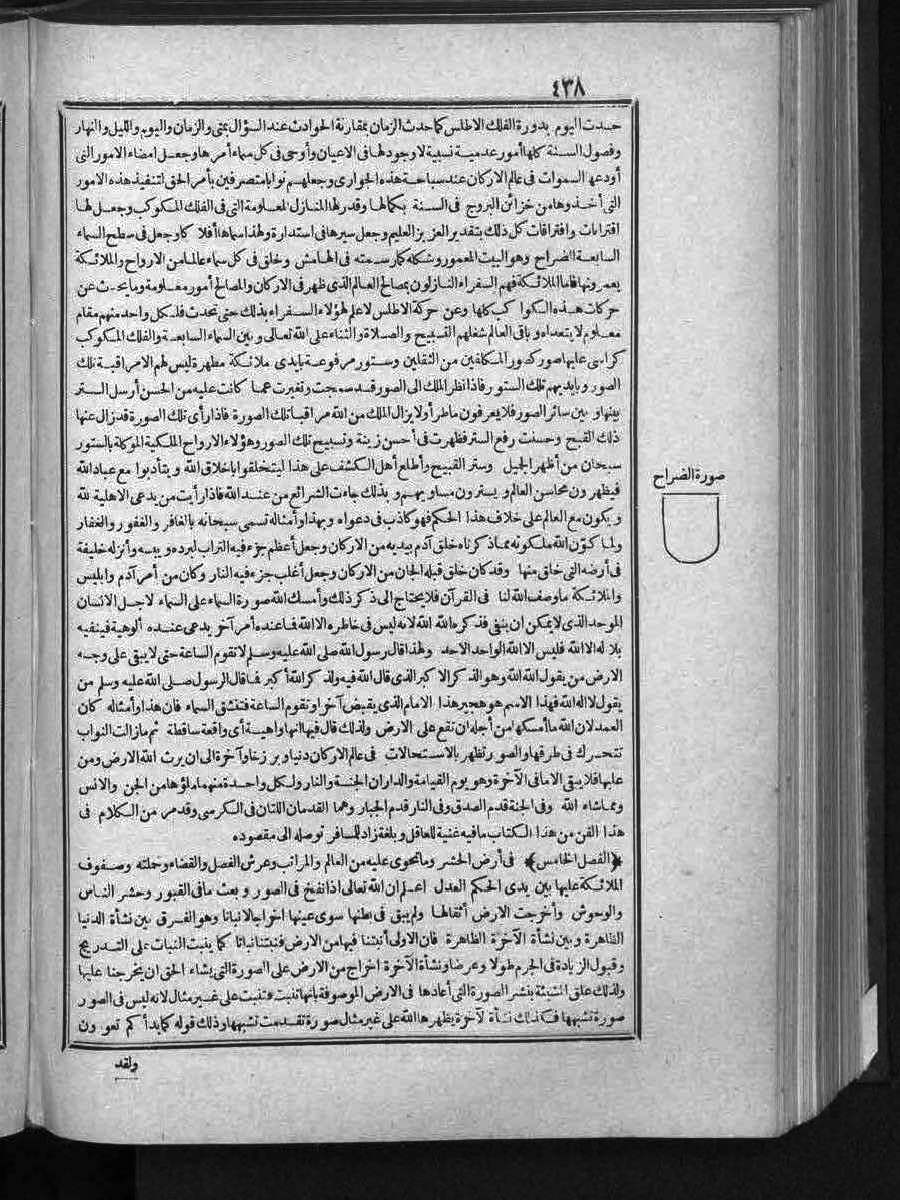 ٤٣٨
حدث اليوم بدورة الفلك الاطلس كما حدث الزمان بمقارنة الحوادث عند السؤال بمتى والزمان واليوم والليل والنهار
وفصول السنة كلها أمور عدمية نسبية لا وجود لها فى الاعيان وأوحى فى كل سماء أمرها وجعل امضاء الامور التى
أودعها السموات فى عالم الاركان عند سباحة هذه الجوارى وجعلهم نوابا متصرفين بأمر الحق لتنفيذ هذه الامور
التى أخذوها من خزائن البروج فى السنة بكمالها وقدر لها المنازل المعلومة التى فى الفلك المكوكب وجعل لها
اقترانات وافتراقات كل ذلك بتقدير العزيز العليم وجعل سيرها فى استدارة ولهذا سماها أفلاكا وجعل فى سطح السماء
السابعة الضراح وهو البيت المعمور وشكله كما رسمته فى الهامش وخلق فى كل سماء عالما من الارواح والملائكة
يعمرونها فاما الملائكة فهم السفراء النازلون بمصالح العالم الذى ظهر فى الاركان والمصالح أمور معلومة وما يحدث عن
حركات هذه الكواكب كلها وعن حركة الاطلس لا علم لهؤلاء السفراء بذلك حتى تحدث فلكل واحد منهم مقام
معلوم لا يتعداه وباقى العالم شغلهم التسبيح والصلاة والثناء على الله تعالى وبين السماء السابعة والفلك المكوكب
كراسى عليها صور كصور المكلفين من الثقلين وستور مرفوعة بايدى ملائكة مطهرة ليس لهم الا مراقبة تلك
الصور وبايديهم تلك الستور فاذا نظر الملك الى الصور قد سمجت وتغيرت عما كانت عليه من الحسن أرسل الستر
بينها وبين سائر الصور فلا يعرفون ما طرأ ولا يزال الملك من الله مراقبا تلك الصورة فاذا رأى تلك الصورة قد زال عنها
ذلك القبح وحسنت رفع الستر فظهرت فى أحسن زينة وتسبيح تلك الصور وهؤلاء الارواح الملكية الموكلة بالستور
سبحان من أظهر الجميل وستر القبيح وأطلع أهل الكشف على هذا ليتخلقوا باخلاق الله ويتأدبوا مع عباد الله
فيظهرون محاسن العالم ويسترون مساويهم وبذلك جاءت الشرائع من عند الله فاذا رأيت من يدعى الاهلية لله
ويكون مع العالم على خلاف هذا الحكم فهو كاذب فى دعواه وبهذا وأمثاله تسمى سبحانه بالغافر والغفور والغفار
ولما كوّن الله ملكوته مما ذكرناه خلق آدم بيديه من الاركان وجعل أعظم جزء فيه التراب لبرده ويبسه وأنزله خليفة
فى أرضه التى خلق منها وقد كان خلق قبله الجان من الاركان وجعل أغلب جزء فيه النار وكان من أمر آدم وابليس
والملائكة ما وصف الله لنا فى القرآن فلا يحتاج الى ذكر ذلك وأمسك الله صورة السماء على السماء لاجل الانسان
الموحد الذى لا يمكن ان ينفى فذكره الله الله لانه ليس فى خاطره الا الله فاعنده أمر آخر يدعى عنده ألوهية فينفيه
بلا اله الا الله فليس الا الله الواحد الاحد ولهذا قال رسول الله صلى الله عليه وسلم لا تقوم الساعة حتى لا يبقى على وجه
الارض من يقول الله الله وهو الذكر الاكبر الذى قال الله فيه ولذكر الله أكبر فما قال الرسول صلى الله عليه وسلم من
يقول لا اله الا الله فهذا الاسم هو هجير هذا الامام الذى يقبض آخرا وتقوم الساعة فتنشق السماء فان هذا وأمثاله كان
العمد لان الله ما أمسكها من أجله ان تقع على الارض ولذلك قال فيها انها واهية أى واقعة ساقطة ثم ما زالت النواب
تتحرك فى طرقها والصور تظهر بالاستحالات فى عالم الاركان دنيا وبرزخا وآخرة الى ان يرث الله الارض ومن
عليها فلا يبقى الا ما فى الآخرة وهو يوم القيامة والداران الجنة والنار ولكل واحدة منهما ملؤها من الجن والانس
ومما شاء الله وفى الجنة قدم الصدق وفى النار قدم الجبار وهما القدمان اللتان فى الكرسى وقد مر من الكلام فى
هذا الفن من هذا الكتاب ما فيه غنية للعاقل وبلغة زاد للمسافر توصله الى مقصوده
﴿الفصل الخامس﴾ فى أرض الحشر وما تحوى عليه من العالم والمراتب وعرش الفصل والقضاء وحملته وصفوف
الملائكة عليها بين يدى الحكم العدل اعلم ان الله تعالى اذا نفخ فى الصور وبعث ما فى القبور وحشر الناس
والوحوش وأخرجت الارض أثقالها ولم يبق فى بطنها سوى عينها اخراجا لا نباتا وهو الفرق بين نشأة الدنيا
الظاهرة وبين نشأة الآخرة الظاهرة فان الاولى أنبتنا فيها من الارض فنبتنا نباتا كما ينبت النبات على التدريج
وقبول الزيادة فى الجرم طولا وعرضا ونشأة الآخرة اخراج من الارض على الصورة التى يشاء الحق ان يخرجنا عليها
ولذلك علق المشيئة بنشر الصورة التى أعادها فى الارض الموصوفة بانها تنبت فتنبت على غير مثال لانه ليس فى الصور
صورة تشبهها فكذلك نشأة الآخرة يظهرها الله على غير مثال صورة تقدمت تشبهها وذلك قوله كما بدأكم تعودون
ولقد
صورة الضراح